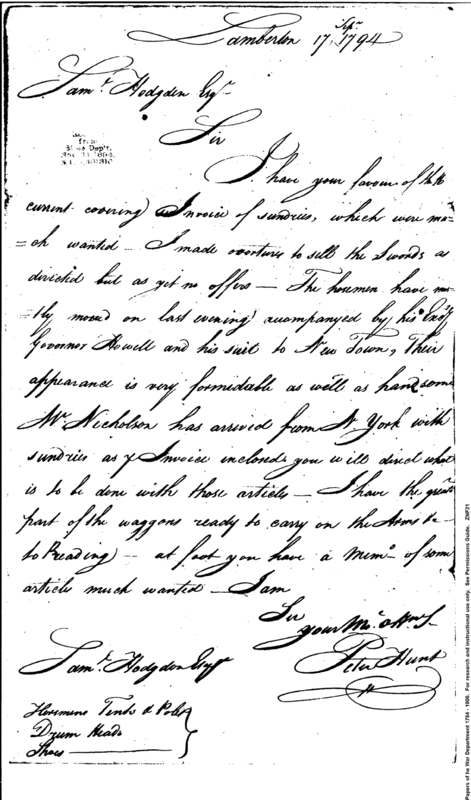 Lamberton 17 Sepr. 1794
Saml. Hodgden Esqr
Sir
I have your favour of the
current covering Invoice of sundries, which were mu=
=ch wanted — I made overtures to sell the Swords as
directed but as yet no offers — The horsemen have mo
=tly moved on last evening accompanyed by his Excy
Govornor Howell and his suit to New Town, Their
appearance is very formidable as well as handsome
Mr Nicholson has arrived from N York with
sundries as Invoice inclosed you will direct what
is to be done with those articles — I have the greatr
part of the waggons ready to carry on the Arms &c
to Reading — at foot you have a Memo of some
article much wanted — I am
Sir
your Mo. O Hm S
Peter Hunt
Saml. Hodgden Esqr
Horsemens Tents & Poles
Drum Heads
Shoes
from
State Dept.
Papers of the War Department 1784 - 1800. For research and instructional use only. See Permissions Guide. ZNF21